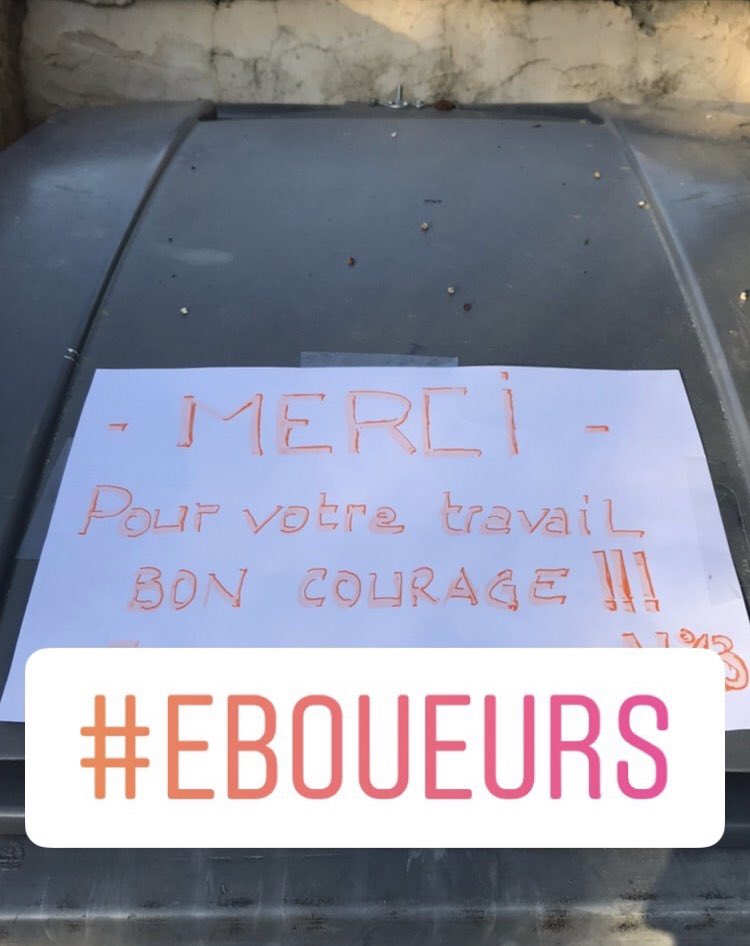 - MERCi -
Pour votre travaiL
BON COURAGE !!!
N°13
#EBOUEURS